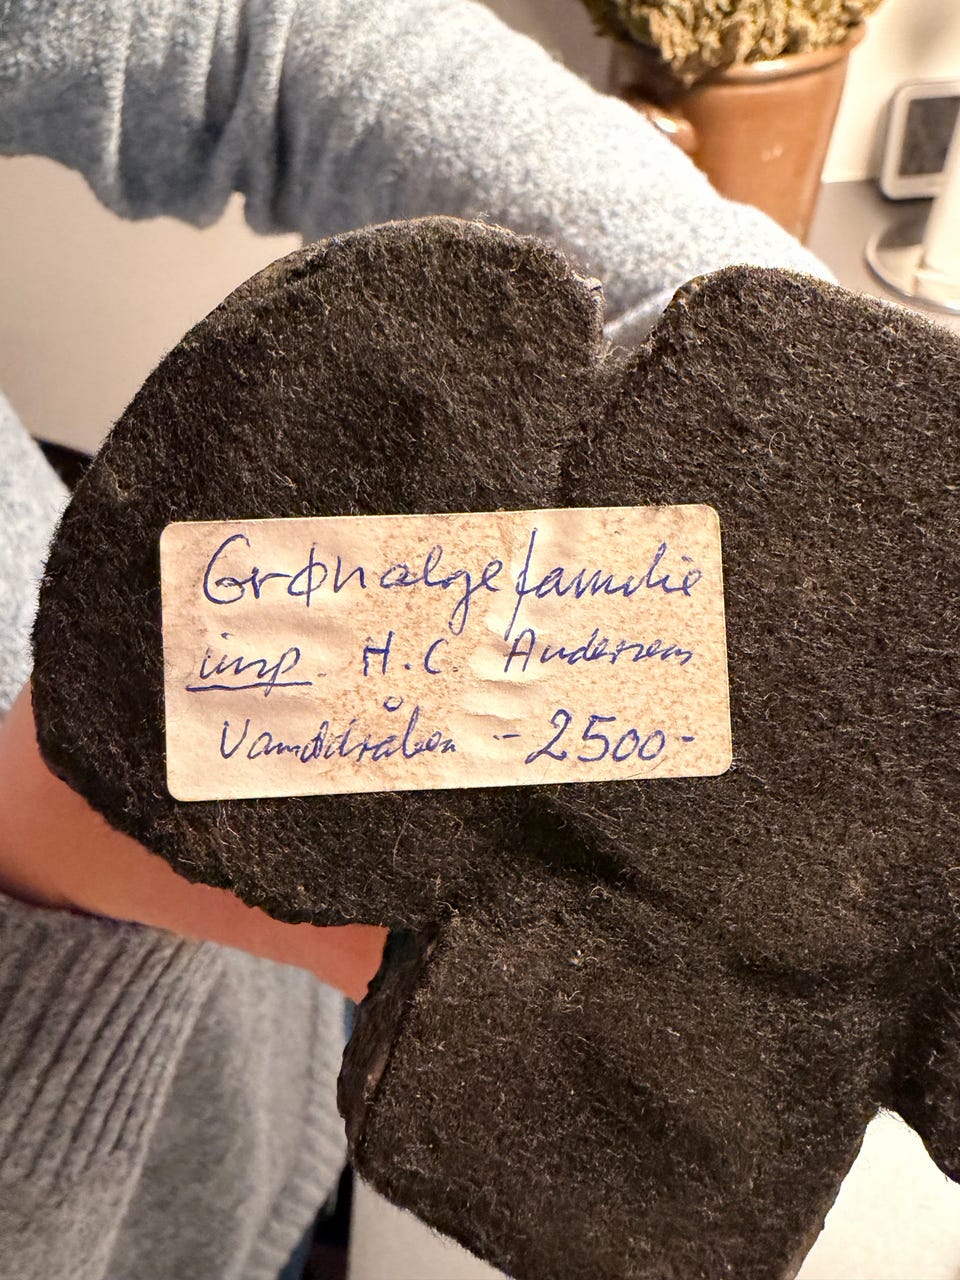 Grønalgefamilie
imp. H.C. Andersens
Vanddråben - 2500-